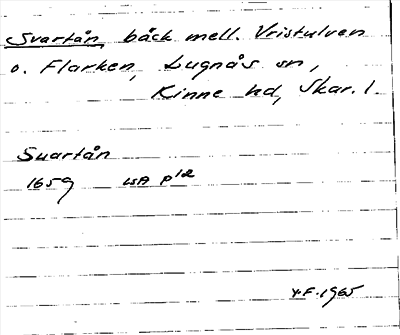 Svartån bäck mell. Vristulven
o. Flarken, Lugnås sn,
Kinne hd, Skar. l.
Svartån
1659 LSA P12
Y.F. 1965